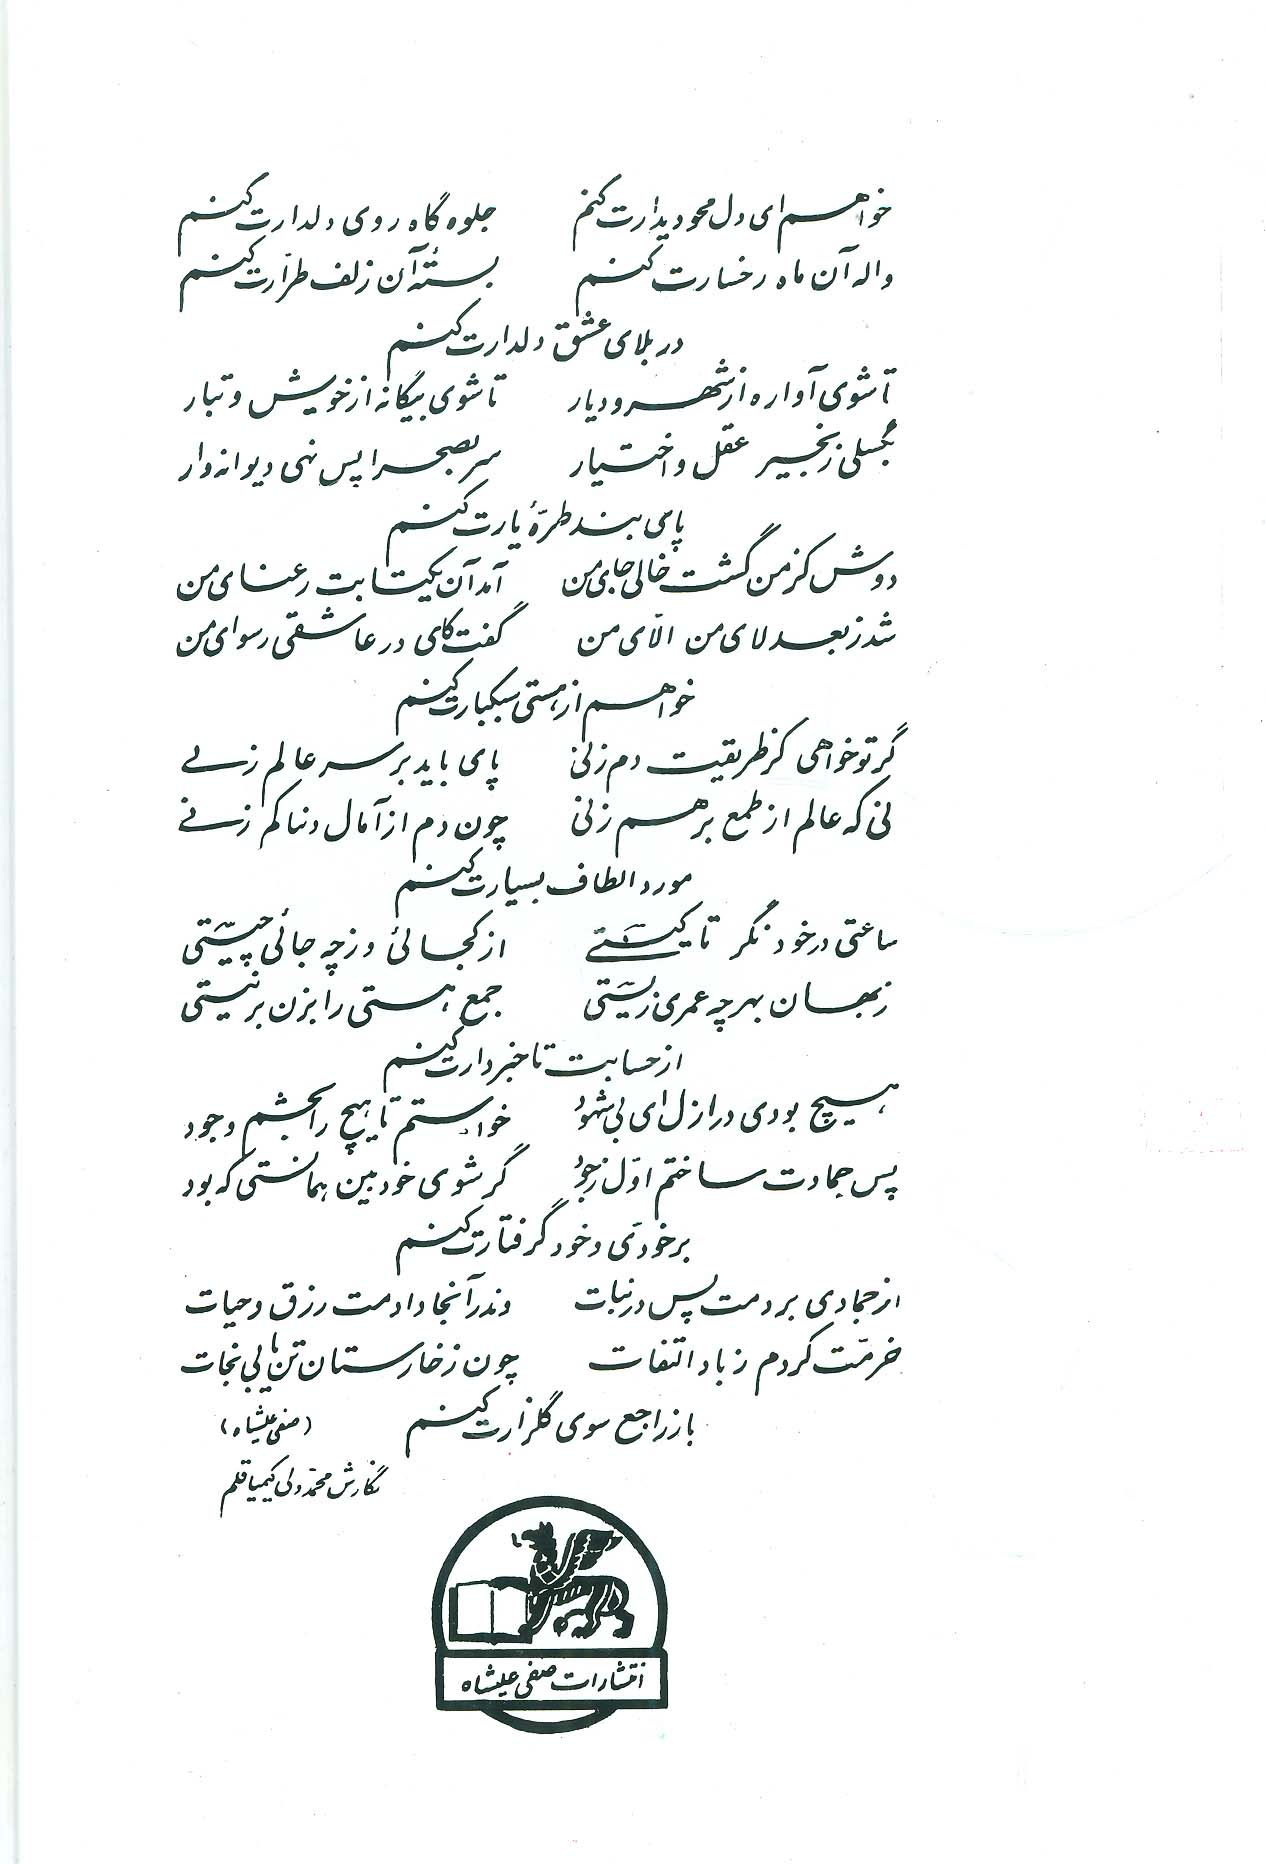 خواهم ای دل محو دیدارت کنم جلوه گاه روی دلدارت کنم
واله آن ماه رخسارت کنم بستهٔ آن زلف طرّارت کنم
در بلای عشق دلدارت کنم
تا شوی آواره از شهر و دیار تا شوی بیگانه از خویش و تبار
بگسلی زنجیر عقل و اختیار سر بصحرا پس نهی دیوانه وار
پای بند طرّهٔ یارت کنم
دوش کز من گشت خالی جای من آمد آن یکتا بت رعنای من
شد ز بعد لای من الاّی من گفت کای در عاشقی رسوای من
خواهم از هستی سبکبارت کنم
گر تو خواهی کز طریقت دم زنی پای باید بر سر عالم زنی
نی که عالم از طمع بر هم زنی چون دم از آمال دنیا کم زنی
مورد الطاف بسیارت کنم
ساعتی در خود نگر تا کیستی از کجائی وز چه جائی چیستی
زجهان بهر چه عمری زیستی جمع هستی را بزن بر نیستی
از حسابت تا خبردارت کنم
هیچ بودی در ازل ای بی شهود خواستم تا هیچ را بخشم وجود
پس جمادت ساختم اوّل ز جود گر شوی خودبین همانستی که بود
بر خودی و خود گرفتارت کنم
از جمادی بردمت پس در نبات وندر آنجا دادمت رزق و حیات
خرمّت کردم ز باد التفات چون ز خارستان تن یابی نجات
باز راجع سوی گلزارت کنم (صفی علیشاه)
نگارش محمّد ولی کیمیا قلم
انتشارات صفی علیشاه